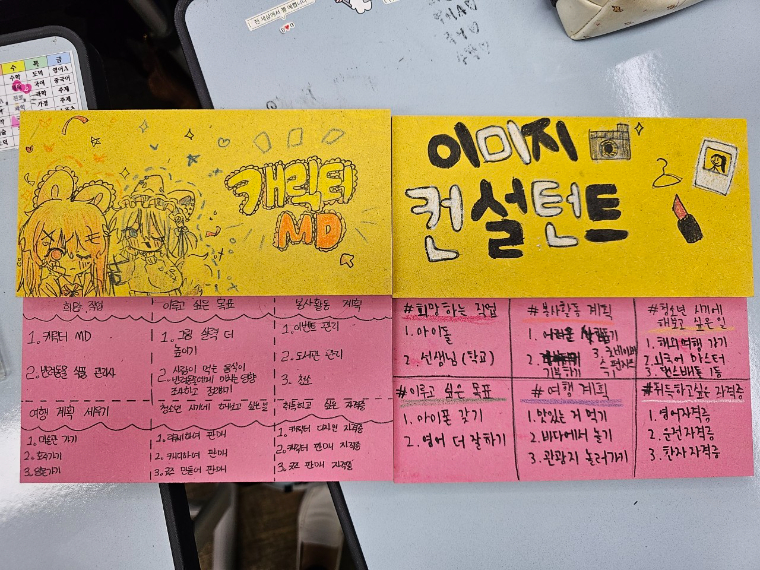 캐릭터
MD
희망 직업
1. 캐릭터 MD
2. 반려동물 식품 관리사
이루고 싶은 목표
1. 그림 실력 더
높이기
2. 사람이 먹는 음식이
반려동물에게 미치는 영향
조사하고
봉사활동 계획
1. 이벤트 관리
2. 도서관 관리
3. 청소
여행 계획 세우기
1. 가기
2. 호주가기
3. 가기
청소년 시기에 해보고 싶은
1. 판매
2. 판매
3. 굿즈 만들어 판매
취득하고 싶은 자격증
1. 캐릭터 디자인 자격증
2. 캐릭터 판매 자격증
3. 굿즈 판매 자격증
이미지
컨설턴트
#희망하는 직업
1. 아이돌
2. 선생님 (학교)
#봉사활동 계획
1. 어려운
2. 기부하기
3.
#청소년 시기에
해보고 싶은 일
1. 해외여행 가기
2. 외국어 마스터
#이루고 싶은 목표
1. 아이폰 갖기
2. 영어 더 잘하기
#여행 계획
1. 맛있는 거 먹기
2. 바다에서 놀기
3. 관광지 놀러가기
#취득하고싶은 자격증
1. 영어자격증
2. 운전자격증
3. 한자 자격증
수 목 금
수학 도덕 영어A
국어 중국어
과학 주제
가정 주제